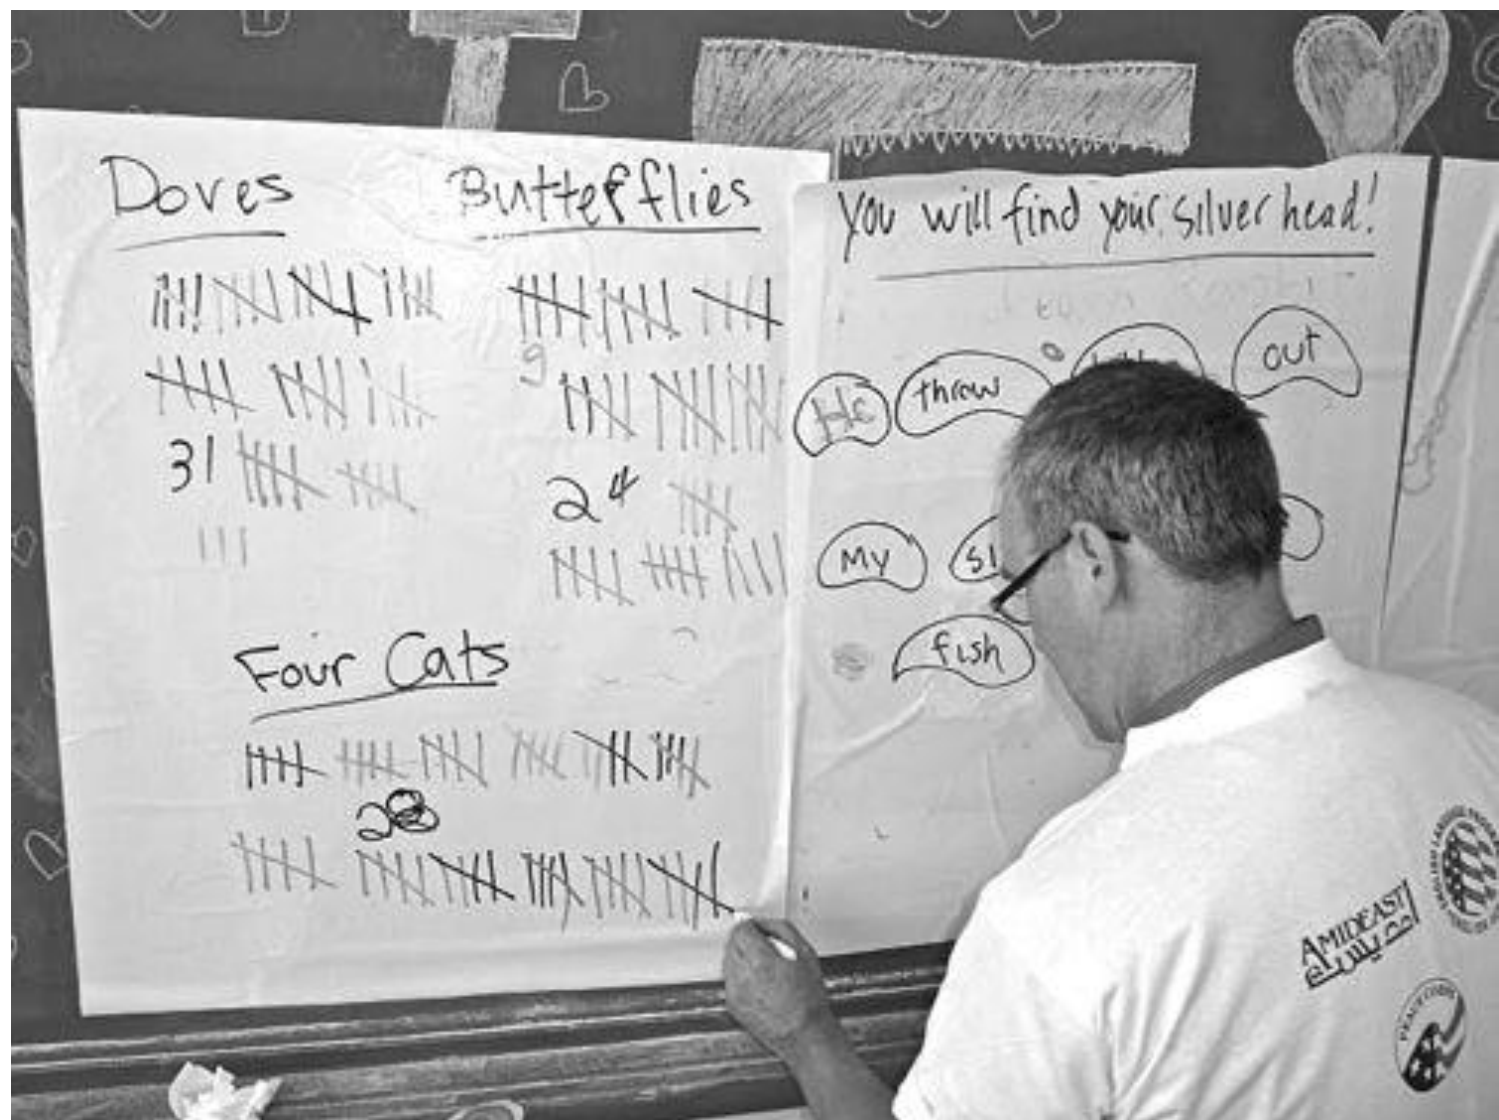 Doves
Butterflies
9
31
24
Four Cats
28
You will find your silver head!
He throw out
My
fish
AMIDEAST
أمديست
PEACE CORPS